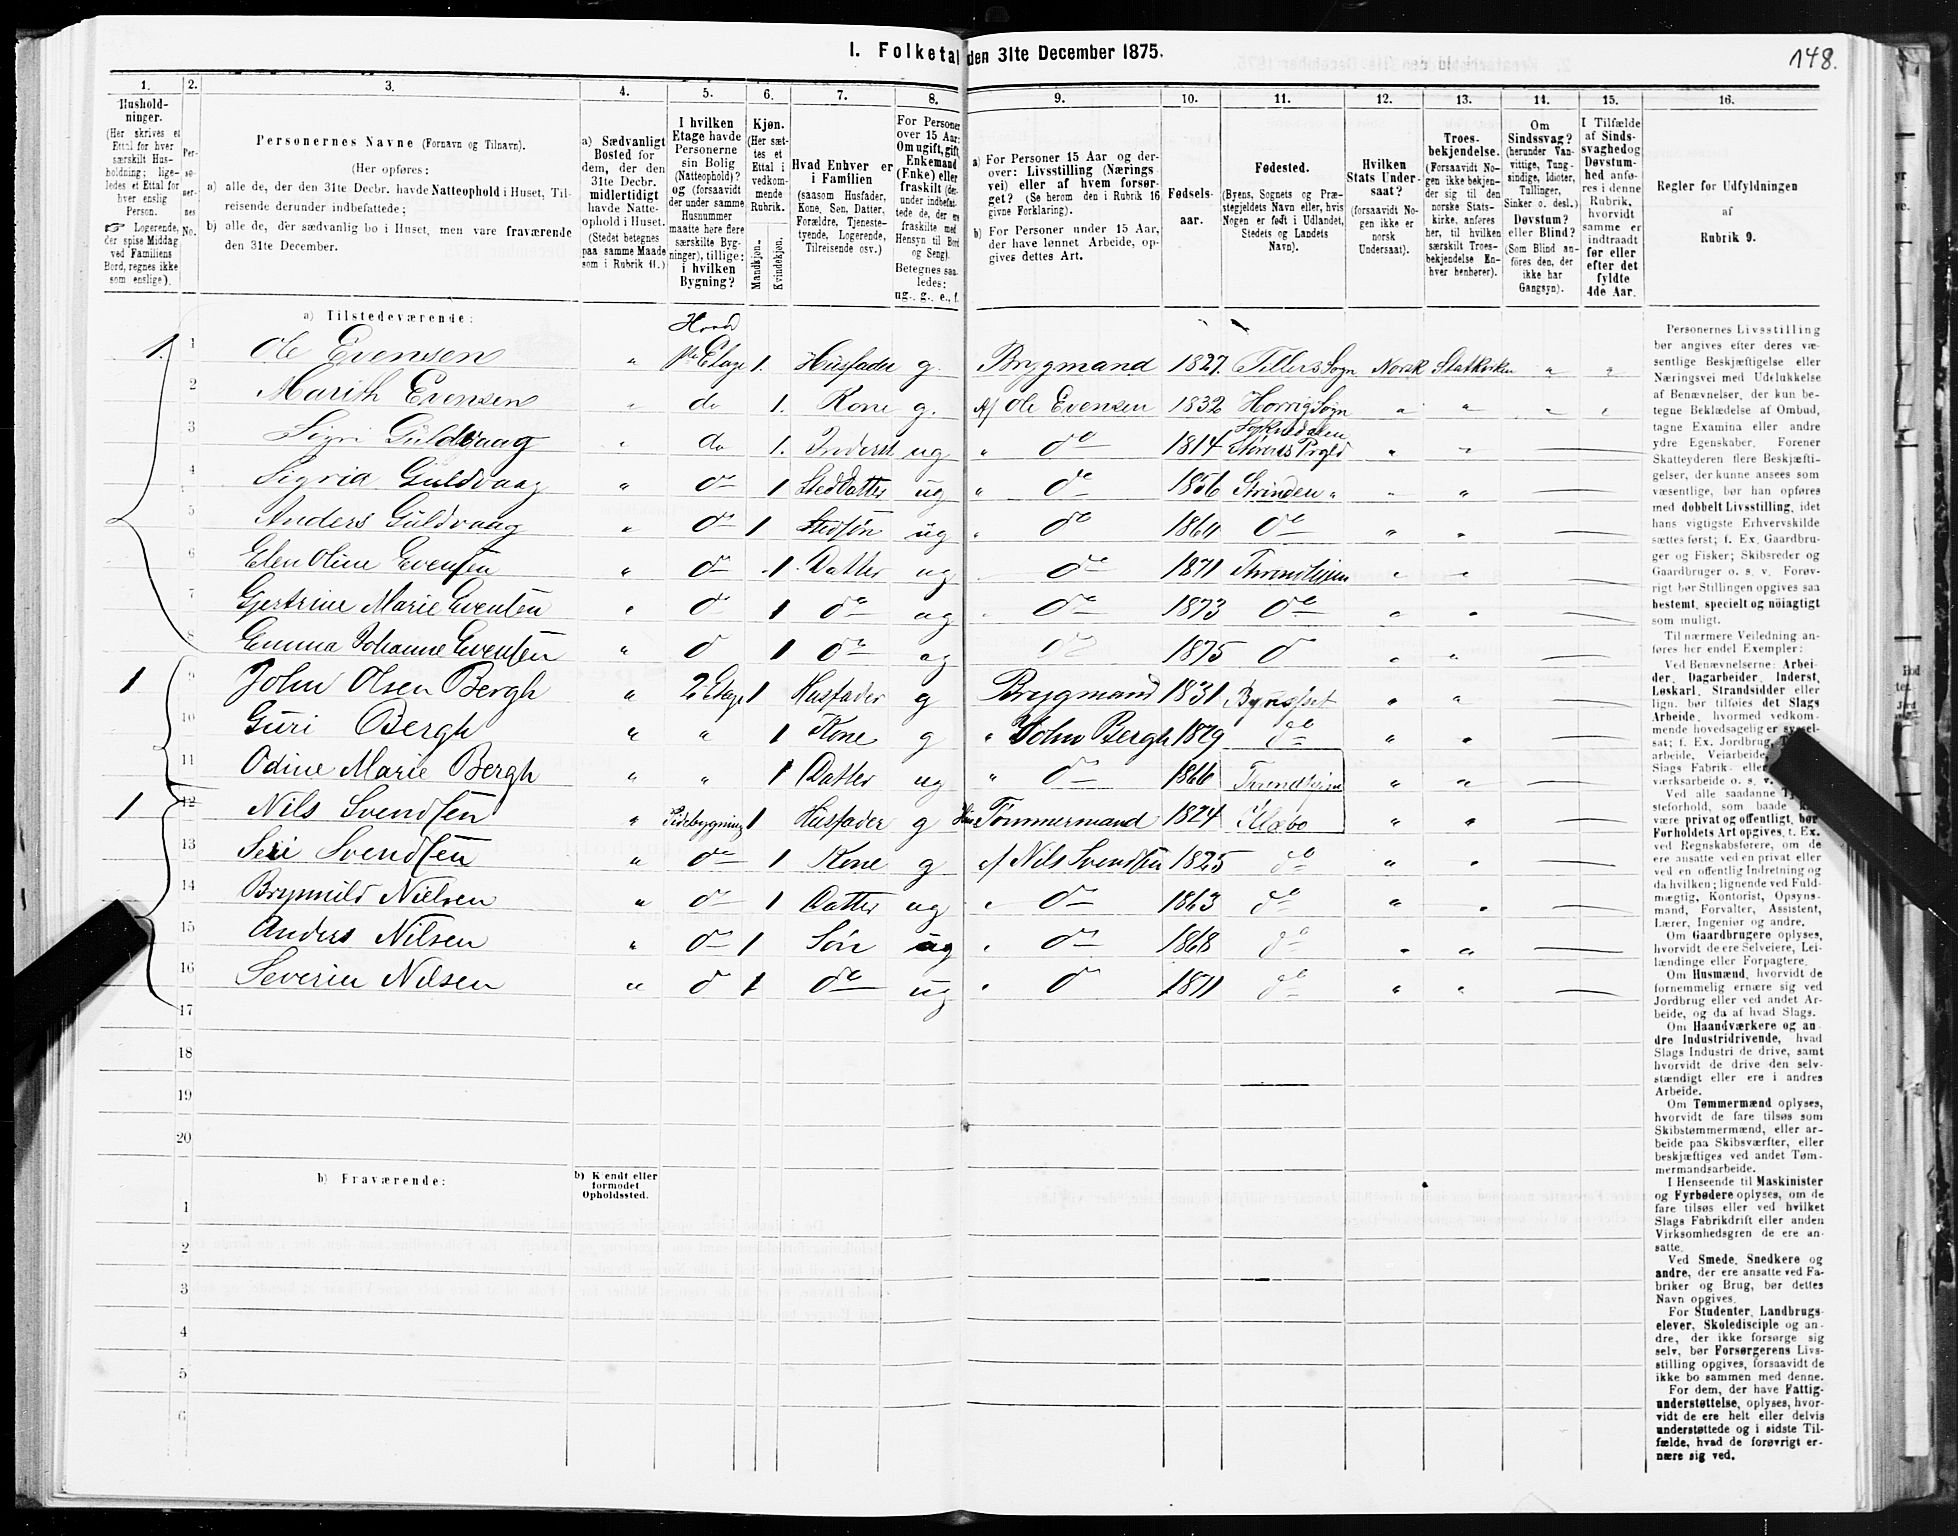 148.
I. Folketal den 31te December 1875.
1. 2. 3. 4. 5. 6. 7. 8. 9. 10. 11. 12. 13. 14. 15. 16.
Hushold-
ninger.
(Her skrives et
Ettal for hver
særskilt Hus-
holdning; lige-
ledes et Ettal for
hver enslig
Person.
☞ Logerende,
der spise Middag
ved Familiens
Bord, regnes ikke
som enslige).
Per-
so-
ner-
nes
No.
Personernes Navne (Fornavn og Tilnavn).
(Her opføres:
a) alle de, der den 31te Decbr. havde Natteophold i Huset, Til-
reisende derunder indbefattede;
b) alle de, der sædvanlig bo i Huset, men vare fraværende
den 31te December.
a) Sædvanligt
Bosted for
dem, der den
31te Decbr.
midlertidigt
havde Natte-
ophold i Huset.
(Stedet betegnes
paa samme Maade
som i Rubrik 11.)
I hvilken
Etage havde
Personerne
sin Bolig
(Natteophold)?
og (forsaavidt
der under samme
Husnummer
maatte høre flere
særskilte Byg-
ninger), tillige:
i hvilken
Bygning?
Kjøn.
(Her sæt-
tes et
Ettal i
vedkom-
mende
Rubrik.
Mandkjøn.
Kvindekjøn.
Hvad Enhver er
i Familien
(saasom Husfader,
Kone, Søn, Datter,
Forældre, Tjeneste-
tyende, Logerende,
Tilreisende osv.)
For Personer
over 15 Aar:
Om ugift, gift,
Enkemand
(Enke) eller
fraskilt (der-
under indbefat-
tede de, der ere
fraskilte med
Hensyn til Bord
og Seng).
Betegnes saa-
ledes:
ug., g., e., f.
a) For Personer 15 Aar og der-
over: Livsstilling (Nærings-
vei) eller af hvem forsør-
get? (Se herom den i Rubrik 16
givne Forklaring).
b) For Personer under 15 Aar,
der have lønnet Arbeide, op-
gives dettes Art.
Fødsels-
aar.
Fødested.
(Byens, Sognets og Præ-
stegjeldets Navn eller, hvis
Nogen er født i Udlandet,
Stedets og Landets
Navn).
Hvilken
Stats Under-
saat?
(forsaavidt No-
gen ikke er
norsk
Undersaat).
Troes-
bekjendelse.
(Forsaavidt No-
gen ikke bekjen-
der sig til den
norske Stats-
kirke, anføres
her, til hvilken
særskilt Troes-
bekjendelse En-
hver henhører).
Om
Sindssvag?
(herunder Van-
vittige, Tung-
sindige, Idioter,
Tullinger,
Sinker o. desl.)
Døvstum?
eller Blind?
(Som Blind an-
føres den, der
ikke har
Gangsyn).
I Tilfælde
af Sinds-
svaghed og
Døvstum-
hed anfø-
res i denne
Rubrik,
hvorvidt
samme er
indtraadt
før eller
efter det
fyldte
4de Aar.
Regler for Udfyldningen
af
Rubrik 9.
a) Tilstedeværende:
1. 1 Ole Evensen " Etage 1. Husfader g. Brygmand 1827. Tillers Sogn Norsk Statkirken " "
2 Marith Evensen " do 1. Kone g. Af Ole Evensen 1832 Sogn " " " "
3 Sigri Guldvaag " do 1. Inderst ug " do 1814 Størens Prgld " "
4 Sigria Guldvaag " do 1 Steddatter ug " do 1856 Strinden " " "
5 Anders Guldvaag " do 1 Stedsøn ug " do 1860 do " "
6 Elen Oline Evensen " do 1 Datter ug " do 1871 Throndhjem " " —
7 Gjertrine Marie Evensen " do 1 do ug " do 1873 do " " —
8 Emma Johanne Evensen " d 1 do ug do 1875 d " " —
1 9 John Olsen Bergh " 2 Etage 1 Husfader g Brygmand 1831 Bynesset " " —
10 Guri Bergh " " 1 Kone g " John Bergh 1829 do " " —
11 Odine Marie Bergh " " 1 Datter ug " do 1866 Throndhjem " " —
1 12 Nils Svendsen " Sidebygning 1 Husfader g Tømmermand 1824 " " —
13 Seri Svendsen " do 1 Kone g af Nils Svendsen 1825 do " " —
14 Brynnild Nielsen " do 1 Datter ug " do 1863 do " " —
15 Anders Nilsen " do 1 Søn ug " do 1868 do " " —
16 Severin Nilsen " d 1 do ug " d 1871 do " " —
17
18
19
20
b) Fraværende:
b) Kjendt eller
formodet
Opholdssted.
1
2
3
4
5
6
Personernes Livsstilling
bør angives efter deres væ-
sentlige Beskjæftigelse eller
Næringsvei med Udelukkelse
af Benævnelser, der kun be-
tegne Beklædelse af Ombud,
tagne Examina eller andre
ydre Egenskaber. Forener
Skatteyderen flere Beskjæfti-
gelser, der kunne ansees som
væsentlige, bør han opføres
med dobbelt Livsstilling, idet
hans vigtigste Erhvervskilde
sættes først; f. Ex. Gaardbru-
ger og Fisker; Skibsreder og
Gaardbruger o. s. v. Forøv-
rigt bør Stillingen opgives saa
bestemt, specielt og nöiagtigt
som muligt.
Til nærmere Veiledning an-
føres her endel Exempler:
Ved Benævnelserne: Arbei-
der, Dagarbeider, Inderst,
Løskarl, Strandsidder eller
lign. bør tilføies det Slags
Arbeide, hvormed vedkom-
mende hovedsagelig er syssel-
sat; f. Ex. Jordbrug,
arbeide, Veiarbeide,
Slags Fabrik- eller
værksarbeide o. s. v.
Ved alle saadanne
steforhold, som baade
være privat og offentligt, bør
Forholdets Art opgives, t. Ex.
ved Regnskabsførere, om de
ere ansatte ved en privat eller
ved en offentlig Indretning og
da hvilken; lignende ved Fuld-
mægtig, Kontorist, Opsyns-
mand, Forvalter, Assistent,
Lærer, Ingeniør og andre.
Om Gaardbrugere oplyses,
hvorvidt de ere Selveiere, Lei-
lændinge eller Forpagtere.
Om Husmænd, hvorvidt de
fornemmelig ernære sig ved
Jordbrug eller ved andet Ar-
beide, og da af hvad Slags.
Om Haandværkere og an-
dre Industridrivende, hvad
Slags Industri de drive, samt
hvorvidt de drive den selv-
stændigt eller ere i andres
Arbeide.
Om Tømmermænd oplyses,
hvorvidt de fare tilsøs som
Skibstømmermænd, eller ar-
beide paa Skibsværfter, eller
beskjæftiges ved andet Tøm-
mermandsarbeide.
I Henseende til Maskinister
og Fyrbødere oplyses, om de
fare tilsøs eller ved hvilket
Slags Fabrikdrift eller anden
Virksomhedsgren de ere an-
satte.
Ved Smede, Snedkere og
andre, der ere ansatte ved Fa-
briker og Brug, bør dettes
Navn opgives.
For Studenter, Landbrugs-
elever, Skoledisciple og an-
dre, der ikke forsørge sig
selv, bør Forsørgerens Livs-
stilling opgives, forsaavidt de
ikke bo sammen med denne.
For dem, der have Fattig-
understøttelse, oplyses, hvor-
vidt de ere helt eller delvis
understøttede og i sidste Til-
fælde, hvad de forøvrigt er-
nære sig ved.